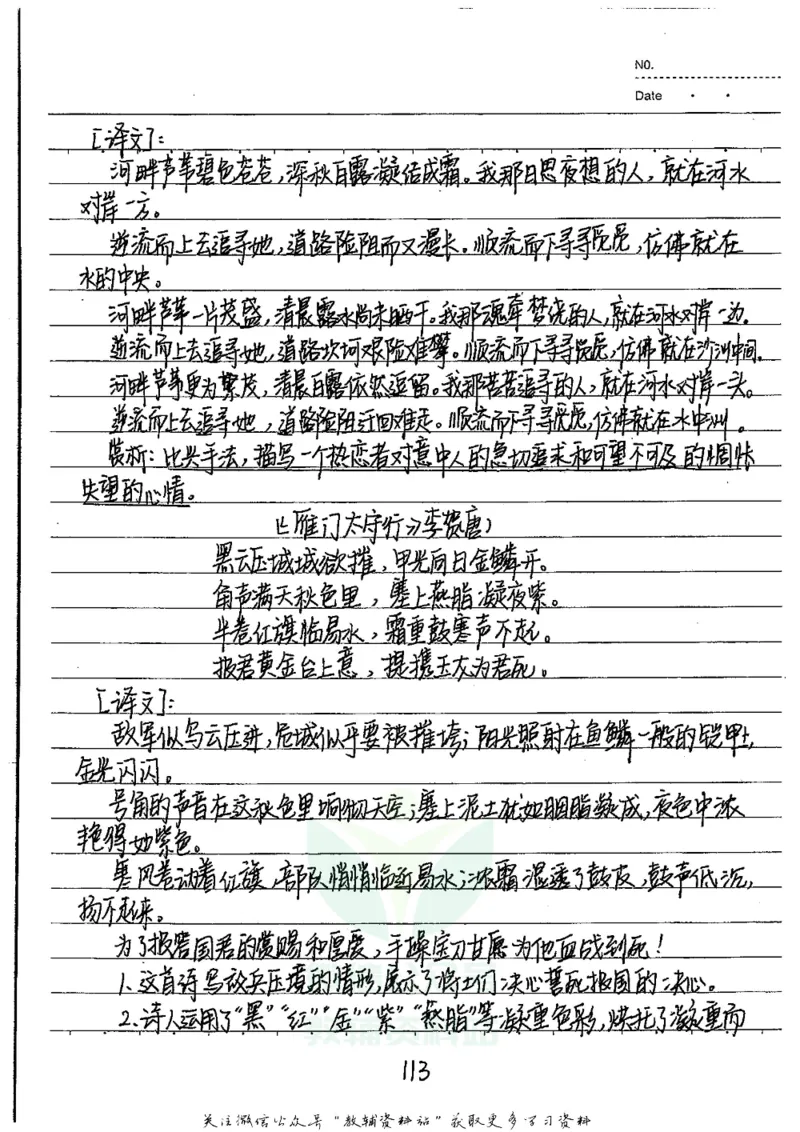 NO.
Date
[译文]:
河畔芦苇碧色苍苍,深秋白露凝结成霜。我那日思夜想的人,就在河水
对岸一方。
逆流而上去追寻她,道路险阻而又漫长。顺流而下寻寻觅觅,仿佛就在
水的中央。
河畔芦苇一片茂盛,清晨露水尚未晒干。我那魂牵梦绕的人,就在河水对岸一边。
逆流而上去追寻她,道路坎坷艰险难攀。顺流而下寻寻觅觅,仿佛就在沙洲中间。
河畔芦苇更为繁茂,清晨白露依然逗留。我那苦苦追寻的人,就在河水对岸一头。
逆流而上去追寻她,道路险阻迂回难走。顺流而下寻寻觅觅,仿佛就在水中洲。
赏析:比兴手法,描写一个热恋者对意中人的急切要求和可望不可及的惆怅
失望的心情。
《雁门太守行》李贺(唐)
黑云压城城欲摧,甲光向日金鳞开。
角声满天秋色里,塞上燕脂凝夜紫。
半卷红旗临易水,霜重鼓寒声不起。
报君黄金台上意,提携玉龙为君死。
[译文]:
敌军似乌云压进,危城似乎要被摧垮;阳光照射在鱼鳞一般的铠甲上,
金光闪闪。
号角的声音在这秋色里响彻天空;塞上泥土犹如胭脂凝成,夜色中浓
艳得如紫色。
寒风卷动着红旗,部队悄悄临近易水;浓霜湿透了鼓皮,鼓声低沉,
扬不起来。
为了报答国君的赏赐和厚爱,手操宝刀甘愿为他血战到死!
1.这首诗写敌兵压境的情形,展示了将士们决心誓死报国的决心。
2.诗人运用了“黑”“红”“金”“紫”“燕脂”等凝重色彩,烘托了凝重而
教辅资料站
113
关注微信公众号“教辅资料站”获取更多学习资料